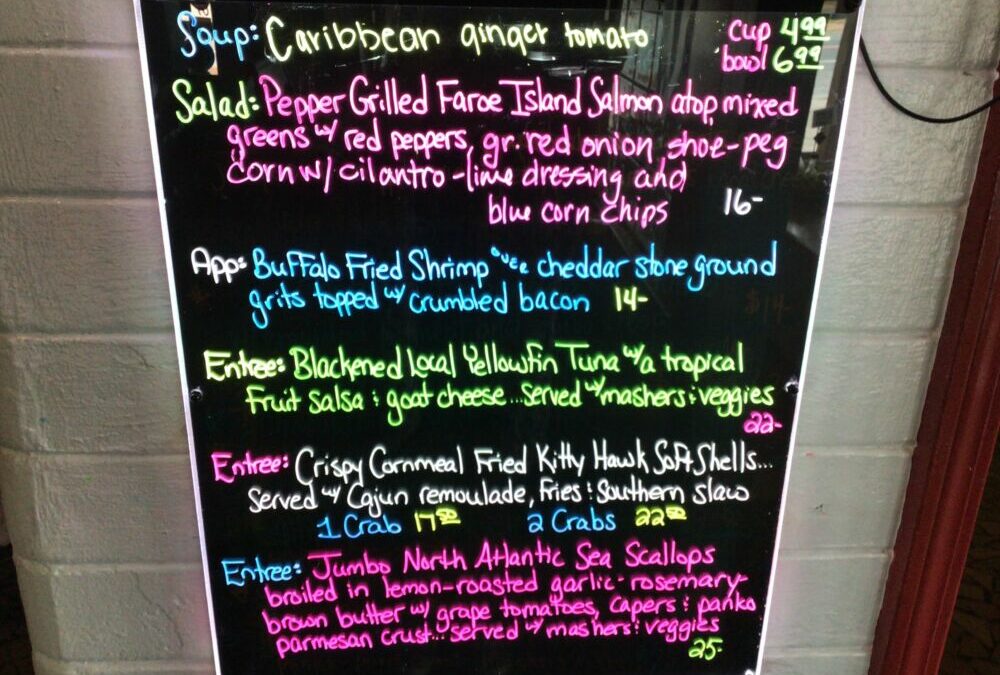 Soup: Caribbean ginger tomato cup 4.99
bowl 6.99
Salad: Pepper Grilled Faroe Island Salmon atop mixed
greens w/ red peppers, gr. red onion, shoe-peg
corn w/ cilantro-lime dressing and
blue corn chips 16-
App: Buffalo Fried Shrimp over cheddar stone ground
grits topped w/ crumbled bacon 14-
Entree: Blackened Local Yellowfin Tuna w/ a tropical
Fruit salsa & goat cheese... served w/ mashers & veggies
22-
Entree: Crispy Cornmeal Fried Kitty Hawk Soft Shells...
served w/ Cajun remoulade, Fries & Southern slaw
1 Crab 17.50 2 Crabs 22.50
Entree: Jumbo North Atlantic Sea Scallops
broiled in lemon-roasted garlic-rosemary-
brown butter w/ grape tomatoes, capers & panko
parmesan crust... served w/ mashers & veggies
25-